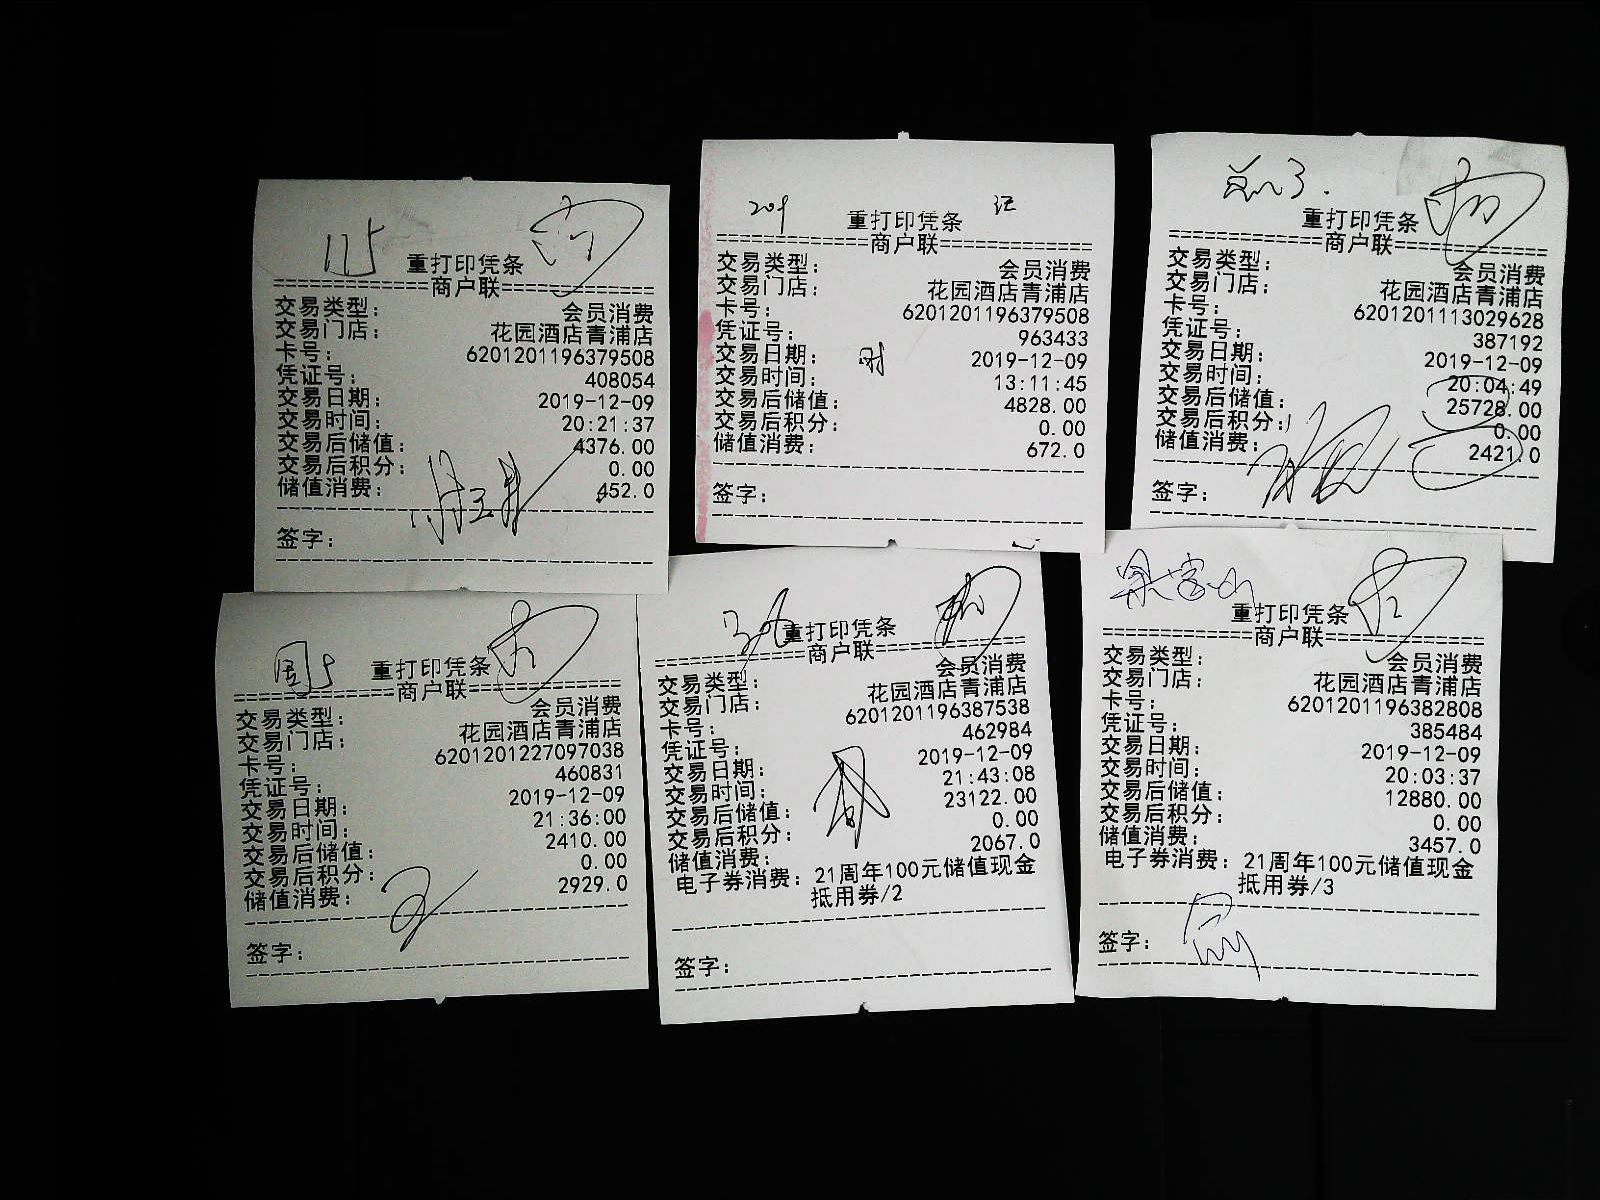 115
重打印凭条
==========商户联==========
交易类型: 会员消费
交易门店: 花园酒店青浦店
卡号: 6201201196379508
凭证号: 408054
交易日期: 2019-12-09
交易时间: 20:21:37
交易后储值: 4376.00
交易后积分: 0.00
储值消费: 452.0
签字:
209
重打印凭条
==========商户联==========
交易类型: 会员消费
交易门店: 花园酒店青浦店
卡号: 6201201196379508
凭证号: 963433
交易日期: 2019-12-09
交易时间: 13:11:45
交易后储值: 4828.00
交易后积分: 0.00
储值消费: 672.0
签字:
重打印凭条
==========商户联==========
交易类型: 会员消费
交易门店: 花园酒店青浦店
卡号: 6201201113029628
凭证号: 387192
交易日期: 2019-12-09
交易时间: 20:04:49
交易后储值: 25728.00
交易后积分: 0.00
储值消费: 2421.0
签字:
重打印凭条
==========商户联==========
交易类型: 会员消费
交易门店: 花园酒店青浦店
卡号: 6201201227097038
凭证号: 460831
交易日期: 2019-12-09
交易时间: 21:36:00
交易后储值: 2410.00
交易后积分: 0.00
储值消费: 2929.0
签字:
重打印凭条
==========商户联==========
交易类型: 会员消费
交易门店: 花园酒店青浦店
卡号: 6201201196387538
凭证号: 462984
交易日期: 2019-12-09
交易时间: 21:43:08
交易后储值: 23122.00
交易后积分: 0.00
储值消费: 2067.0
电子券消费: 21周年100元储值现金
抵用券/2
签字:
重打印凭条
==========商户联==========
交易类型: 会员消费
交易门店: 花园酒店青浦店
卡号: 6201201196382808
凭证号: 385484
交易日期: 2019-12-09
交易时间: 20:03:37
交易后储值: 12880.00
交易后积分: 0.00
储值消费: 3457.0
电子券消费: 21周年100元储值现金
抵用券/3
签字: